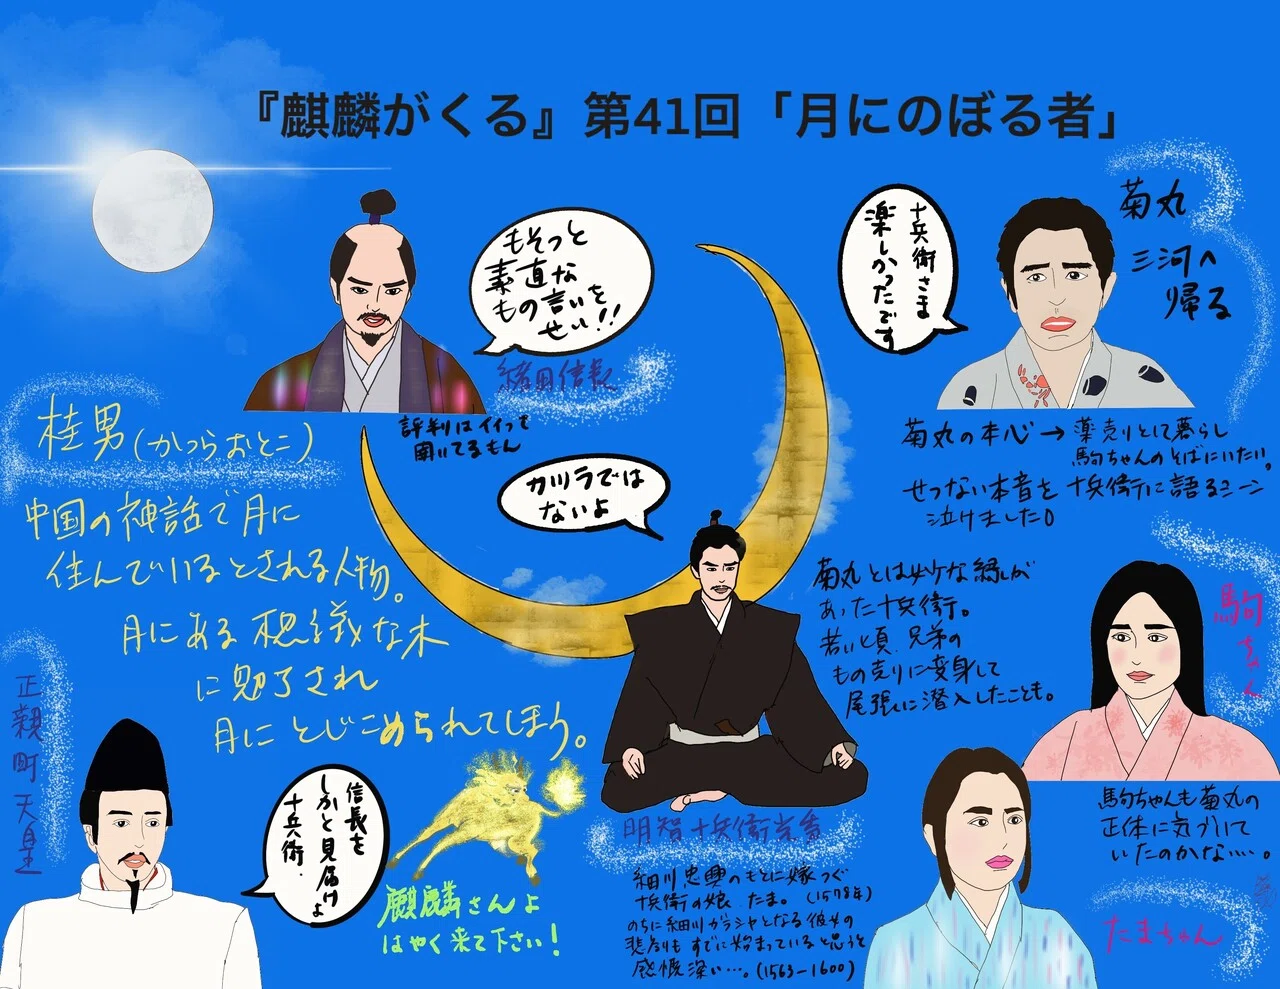 『麒麟がくる』第41回「月にのぼる者」
もそっと
素直な
もの言いを
せい!!
織田信長
評判はイイって
聞いてるもん
十兵衛さま
楽しかったです
菊丸
三河へ
帰る
菊丸の本心→薬売りとして暮らし
駒ちゃんのそばにいたい。
せつない本音を十兵衛に語るシーン
泣けました。
桂男(かつらおとこ)
中国の神話で月に
住んでいるとされる人物。
月にある想議な木
に魅了され
月にとじこめられてしまう。
カツラでは
ないよ
菊丸とは妙な縁が
あった十兵衛。
若い頃、兄弟の
もの売りに変身して
尾張に潜入したことも。
駒ちゃん
駒ちゃんも菊丸の
正体に気づいて
いたのかな…。
正親町天皇
信長を
しかと見届けよ
十兵衛.
麒麟さんよ
はやく来て下さい!
明智十兵衛光秀
細川忠興のもとに嫁つぐ
十兵衛の娘、たま。(1578年)
のちに細川ガラシャとなる彼女の
悲劇もすでに始まっていると思うと
感慨深い…。(1563-1600)
たまちゃん